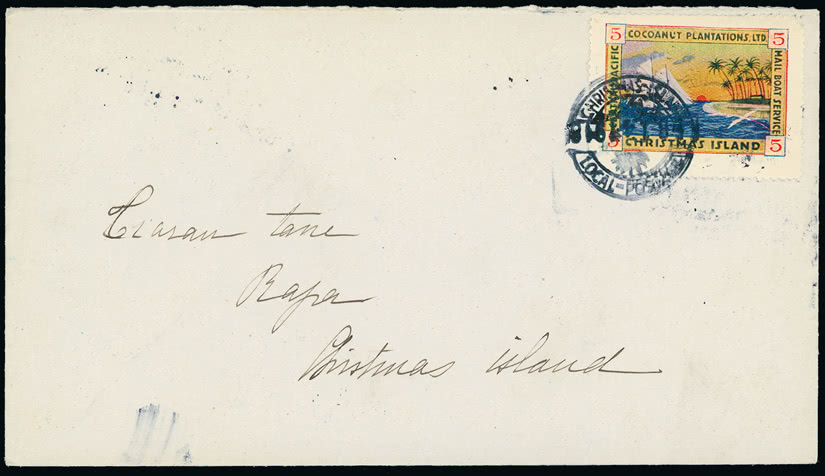 5 COCOANUT PLANTATIONS, LTD. 5
PACIFIC
MAIL BOAT SERVICE
5 CHRISTMAS ISLAND 5
CHRISTMAS-ISLAND
LOCAL-POST
tane
Rapa
Christmas island